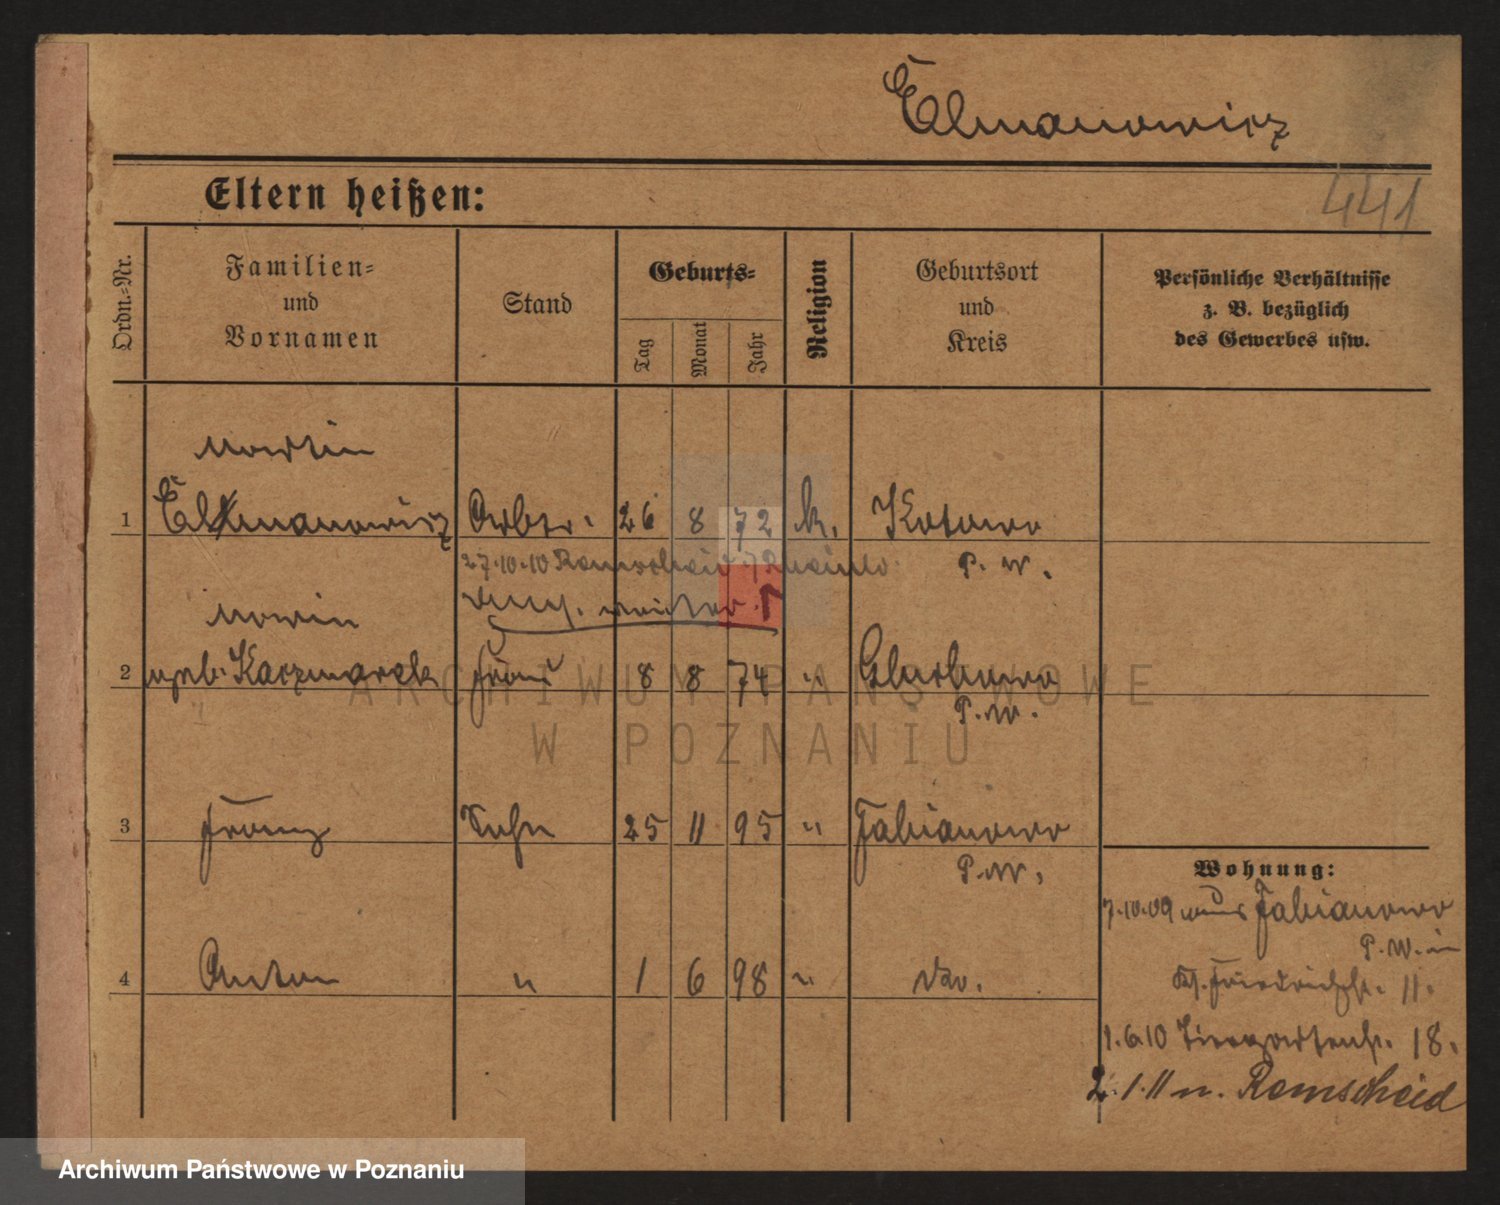 Elmanowicz
Eltern heißen:
441
Ordn.-Nr.
Familien-
und
Vornamen
Stand
Geburts-
Tag
Monat
Jahr
Religion
Geburtsort
und
Kreis
Persönliche Verhältnisse
z. B. bezüglich
des Gewerbes usw.
Martin
1 Elmanowicz Arbtr. 26 8 72 k. Kotowo
27.10.10 Remscheid P. W.
weiter
Maria
2 geb. Kaczmarek Frau 8 8 74 " Gluchowo
P. W.
3 Franz Sohn 25 11 95 " Fabianowo
P. W.
Wohnung:
7.10.09 aus Fabianowo
P. W. in
4 Anton " 1 6 98 " do.
Kl. Friedrichstr. 11.
1.6.10 Tiergartenstr. 18.
2.1.11 n. Remscheid
ARCHIWUM PAŃSTWOWE
W POZNANIU
Archiwum Państwowe w Poznaniu